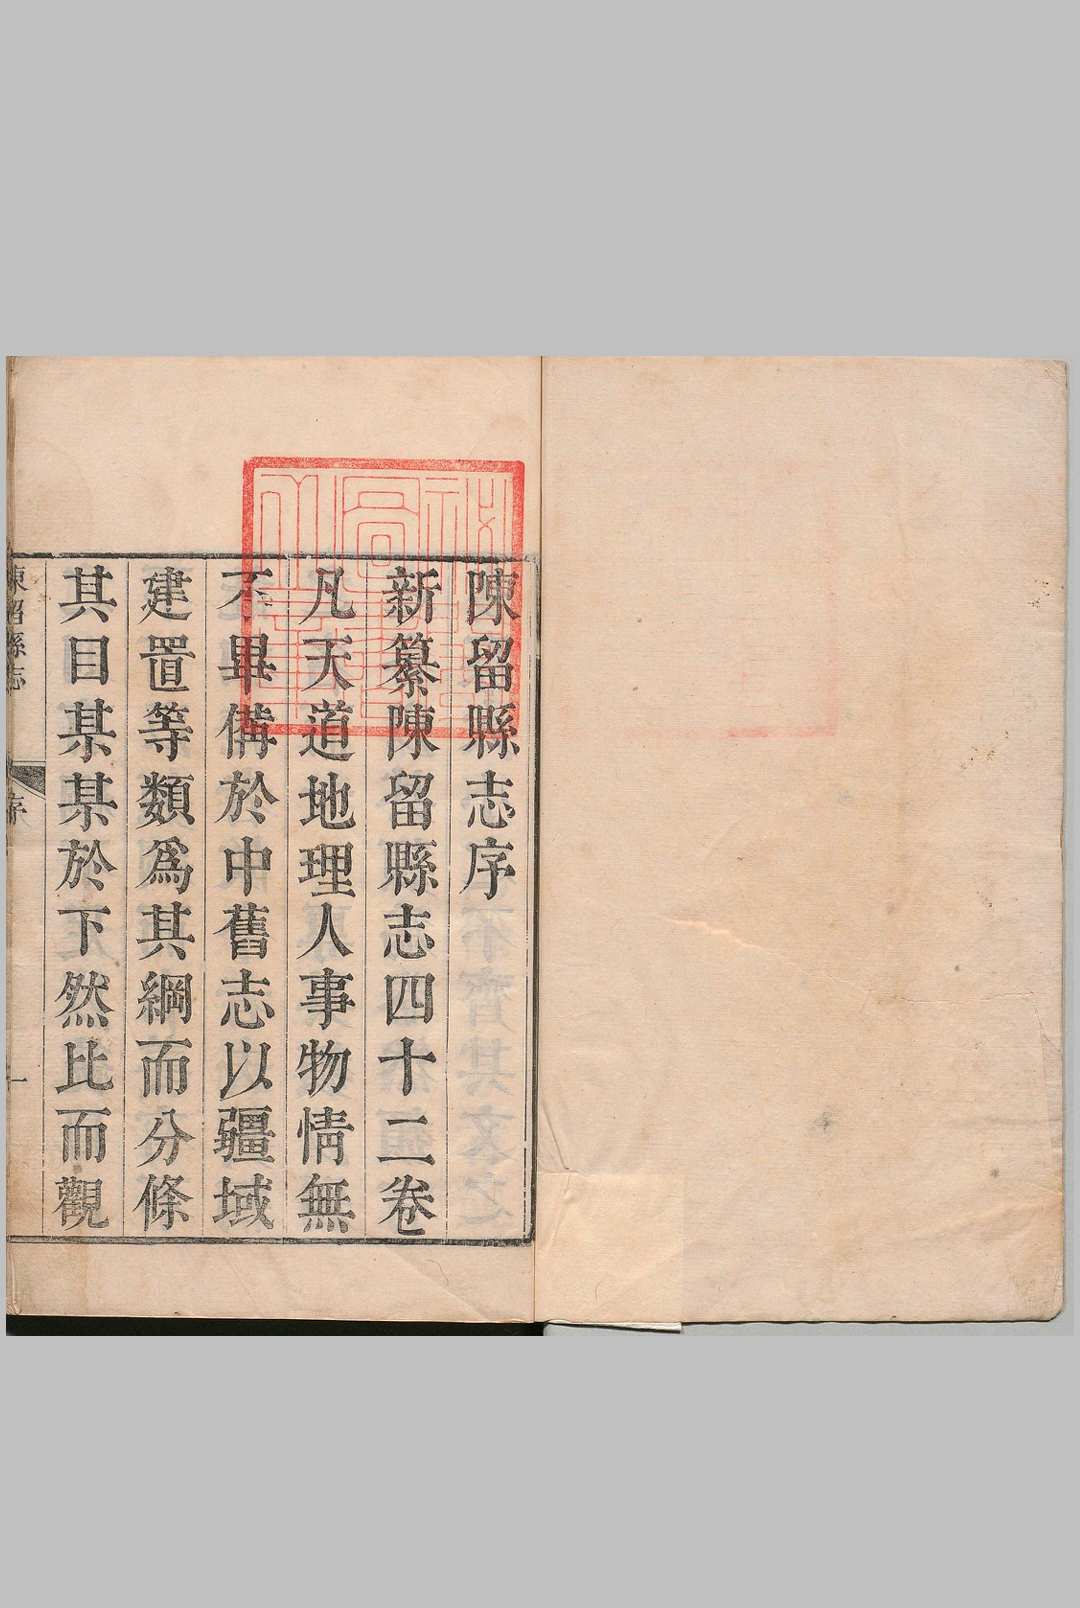 陳留縣志序
新纂陳留縣志四十二卷
凡天道地理人事物情無
不畢備於中舊志以疆域
建置等類爲其綱而分條
其目某某於下然比而觀
陳留縣志 序 一